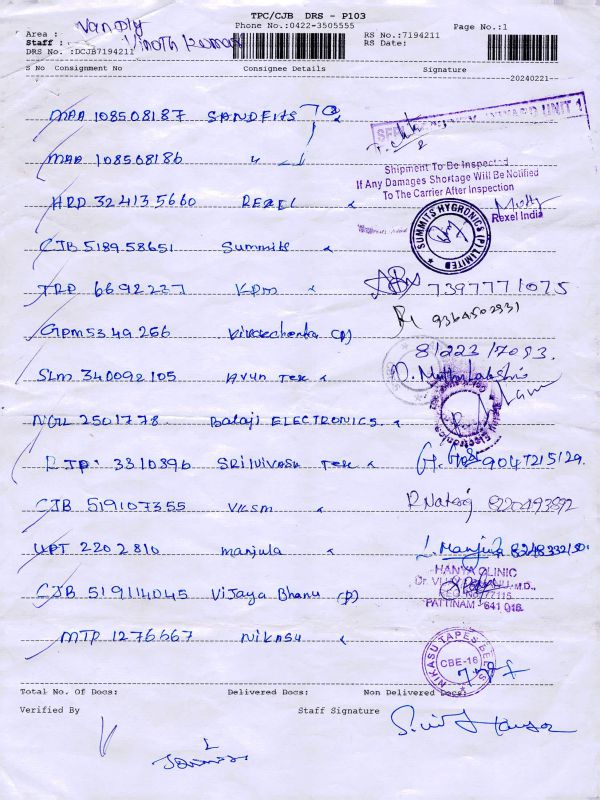 TPC/CJB DRS - P103
Phone No.:0422-3505555
Page No.:1
Area : Vandly
Staff : Vinoth Kumar
DRS No. :DCJB7194211
RS No.:7194211
RS Date:
S No Consignment No Consignee Details Signature
20240221
MAA 108508187
MAA 108508186 "
HRD 324135660 REXEL
Shipment To Be Inspected
If Any Damages Shortage Will Be Notified
To The Carrier After Inspection
Rexel India
CJB 518958651 Summits
SUMMITS HYGRONICS (P) LIMITED
TRP 6692227 KPM 7397771075
GPM 5349256 (P) 9364502931
81223 17053.
SLM 340092105 Arun Tex D. Muthu Lakshmi
NGL 2501778 Balaji ELECTRONICS.
RJP 3310896 SRINIVASA Tex
CJB 519107355 VKSM R Nataraj 8220493892
UPT 2202810 manjula L. Manjula
CJB 519114045 Vijaya Bhanu (P)
HANYA CLINIC
PATTINAM - 641 016.
MTP 1276667 NIKASU
NIKASU TAPES
CBE-16
Total No. Of Docs: Delivered Docs: Non Delivered Docs:
Verified By Staff Signature